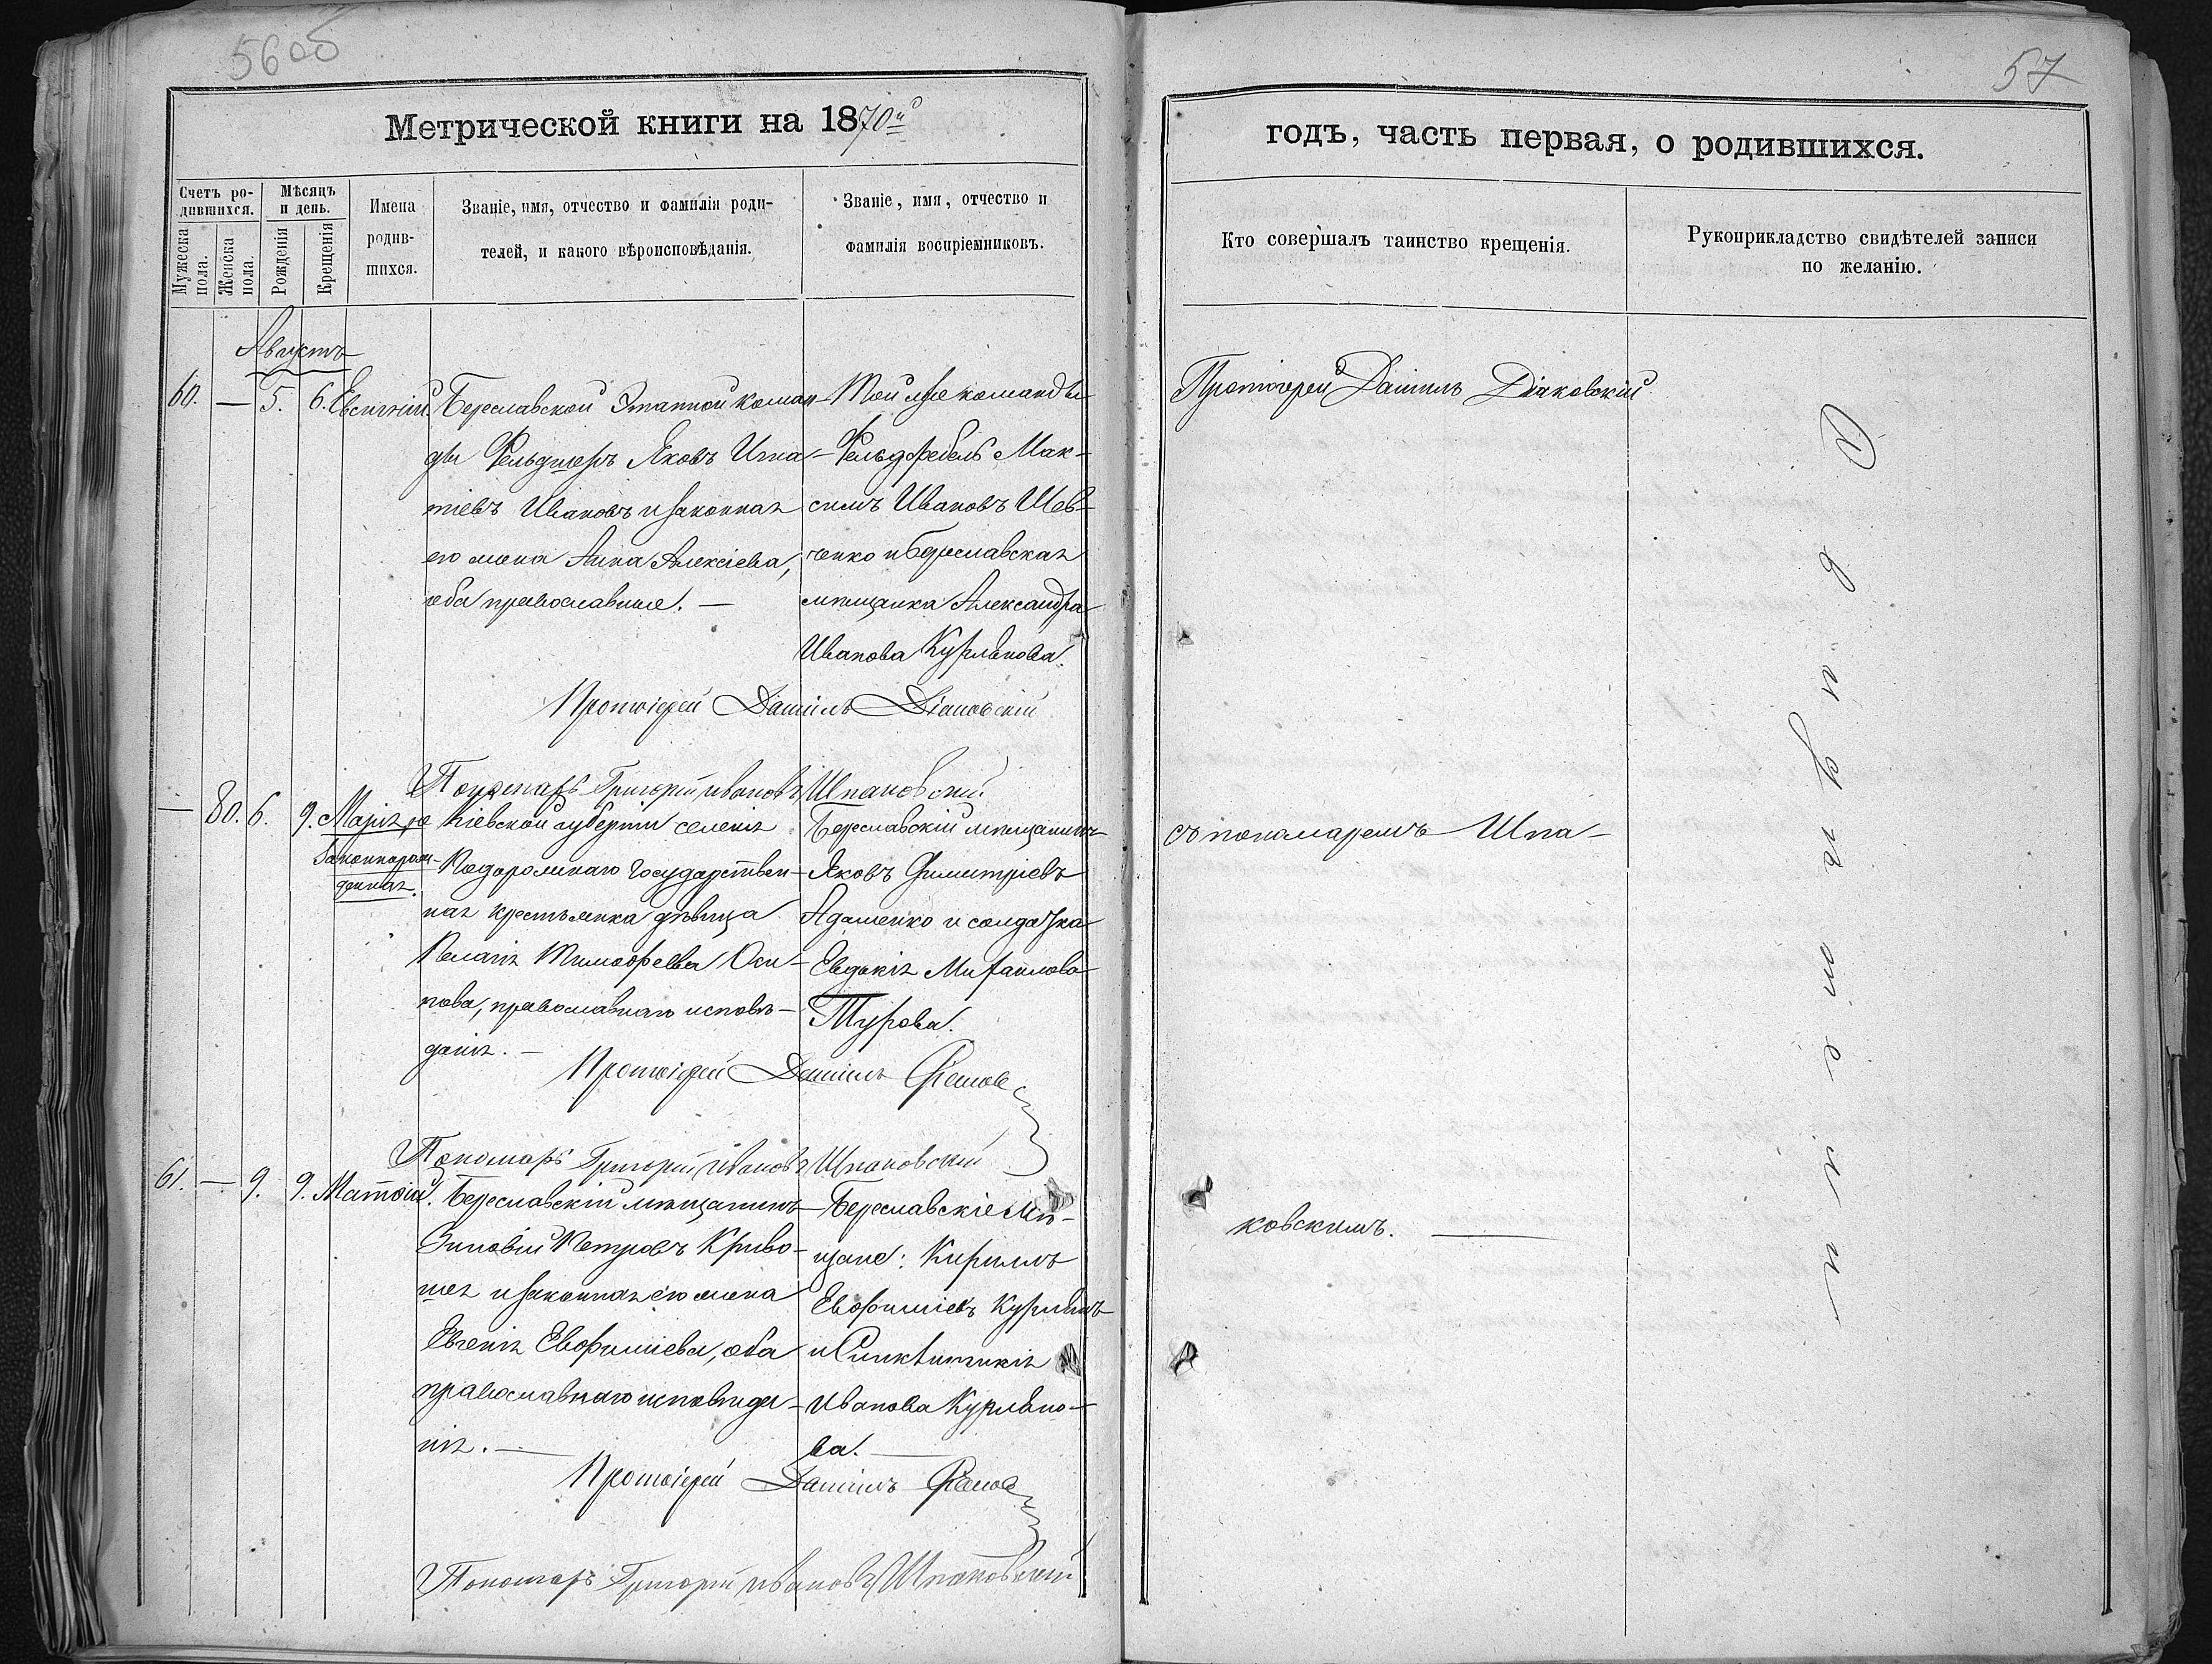 56об
Метрической книги на 1870й
Счетъ родившихся.
Мужеска пола.
Женска пола.
Мѣсяцъ и день.
Рожденія
Крещенія
Имена родившихся.
Званіе, имя, отчество и фамилія родителей, и какого вѣроисповѣданія.
Званіе, имя, отчество и фамилія воспріемниковъ.
Августъ
60. — 5. 6. Евсигній.
Береславской Этапной коман-
ды Фельдшеръ Яковъ Игна-
тіевъ Ивановъ и законная
его жена Анна Алексіева,
оба православные. —
Той же команды
Фельдфебель Мак-
симъ Ивановъ Шев-
ченко и Береславская
мѣщанка Александра
Иванова Курлыкова.
Протоіерей Даніилъ Діаковскій
Пономарь Григорій Ивановъ Шпаковскій
— 80. 6. 9. Марія, не
законнорож-
денная.
Кіевской губерніи селенія
Государствен-
ная крестьянка дѣвица
Пелагія Тимофеева Оси-
пова, православнаго исповѣ-
данія. —
Береславскій мѣщанинъ
Яковъ Димитріевъ
Адаменко и солдатка
Евдокія Михайлова
Турова.
Протоіерей Даніилъ
Пономарь Григорій Ивановъ Шпаковскій
61. — 9. 9. Матфій.
Береславскій мѣщанинъ
Зиновій Петровъ Криво-
шея и законная его жена
Евгенія Евфиміева, оба
православнаго исповѣда-
нія. —
Береславскіе мѣ-
щане: Кириллъ
Евфиміевъ
и Синклитикія
Иванова Курлыко-
ва. —
Протоіерей Даніилъ
Пономарь Григорій Ивановъ Шпаковскій
57
годъ, часть первая, о родившихся.
Кто совершалъ таинство крещенія.
Рукоприкладство свидѣтелей записи по желанію.
Протоіерей Даніилъ Діаковскій
съ пономаремъ Шпа-
ковскимъ. —